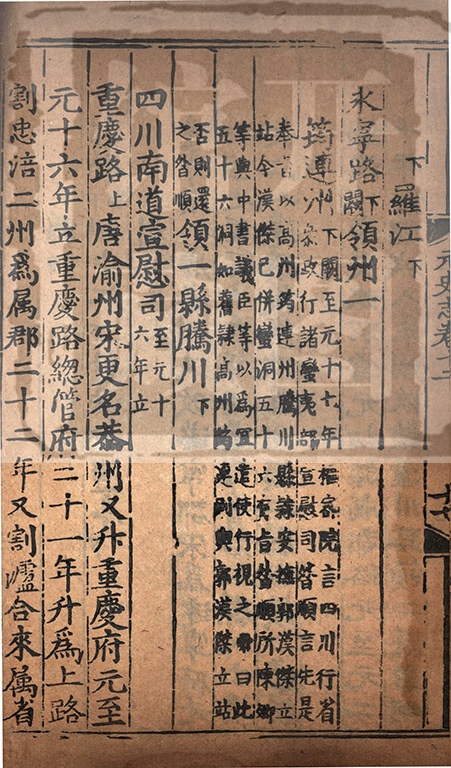 元史志卷十二
下羅江下
永寧路下闕領州一
筠連州下闕至元十七年樞密院言四川行省
參政行諸蠻夷部宣慰司昝順言先是
奉旨以高州筠連州騰川縣隸安撫郭漢傑立
站今漢傑已併蠻洞五十六有旨昝順所陳卿
等與中書議臣等以爲宜遣使行視之帝曰此
五十六洞如舊隸高州筠連則與郭漢傑立站
否則還
之昝順領一縣騰川下
四川南道宣慰司至元十
六年立
重慶路上唐渝州宋更名恭州又升重慶府元至
元十六年立重慶路總管府二十一年升爲上路
割忠涪二州爲属郡二十二年又割瀘合來属省